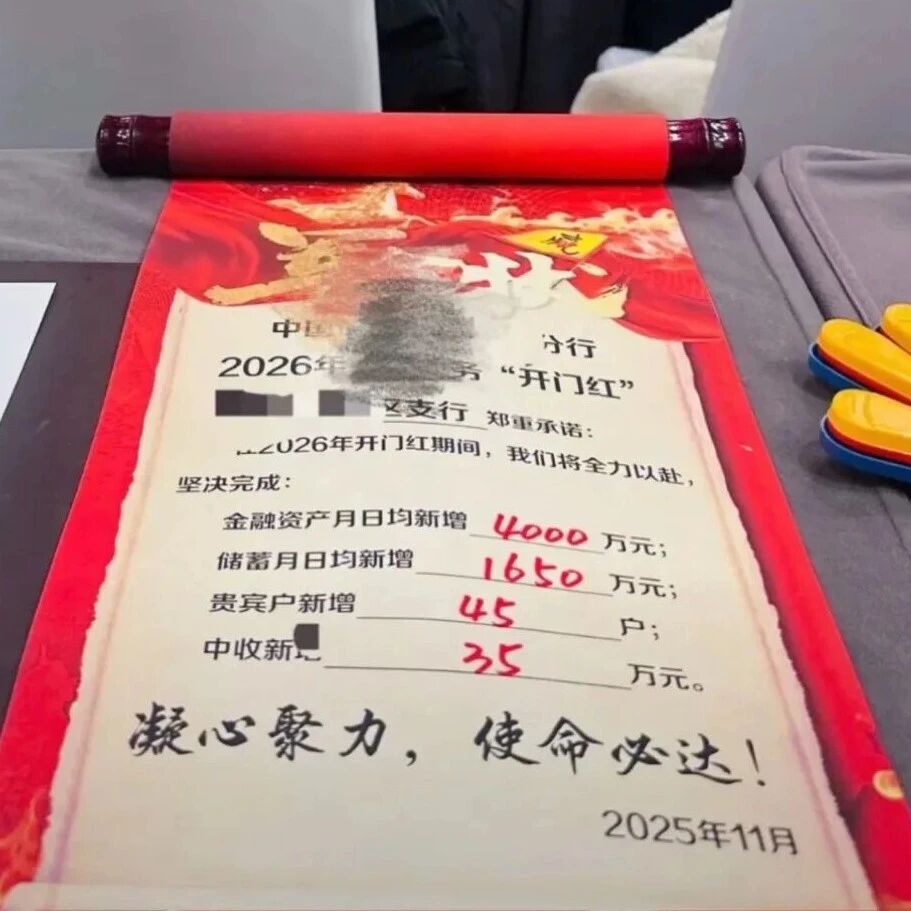 赢
中国 分行
2026年 务“开门红”
区支行 郑重承诺:
在2026年开门红期间,我们将全力以赴,
坚决完成:
金融资产月日均新增 4000 万元;
储蓄月日均新增 1650 万元;
贵宾户新增 45 户;
中收新增 35 万元。
凝心聚力,使命必达!
2025年11月